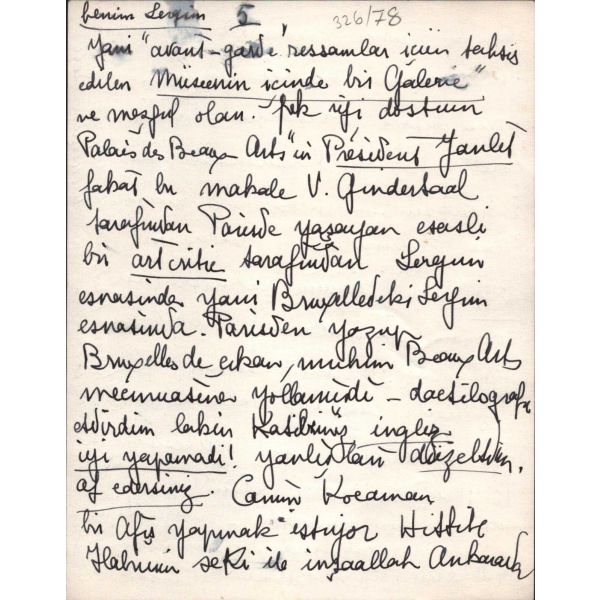 benim Sergim 5 326/78
Yani "avant-garde" ressamlar için tahsis
edilen Müseenin içinde bir Galerie"
ve meşgul olan. Pek iyi dostum
Palais des Beaux Arts"ın Président Janlet
fakat bu makale V. Gindertaal
tarafından Pariste yaşayan esaslı
bir art critic tarafından Sergim
esnasında yani Bruxelledeki Sergim
esnasında. Parisden yazıp
Bruxelles de çıkan, mühim Beaux Arts
mecmuasına yollamıştı - dactilografe
etdirdim lakin Katibimiz ingliz
iyi yapamadı! yanlışları düzeltdim.
af edersiniz. Canım Kocaman
bir Afiş yapmak istiyor Hittite
Habunun sekî ile inşaallah Ankarada